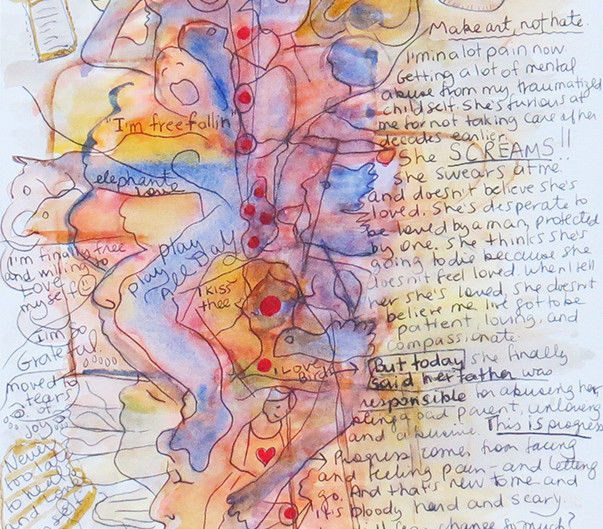 Make art, not hate.
I'm in a lot pain now.
Getting a lot of mental
abuse from my traumatized
child self. She's furious at
me for not taking care of her
decades earlier.
She SCREAMS!!
She swears at me
and doesn't believe she's
loved. She's desperate to
be loved by a man, protected
by one. She thinks she's
going to die because she
doesn't feel loved. When I tell
her she's loved, she doesn't
believe me. I've got to be
patient, loving, and
compassionate.
But today she finally
said her father was
responsible for abusing her,
being a bad parent, unloving
and abusive. This is progress
Progress comes from facing
and feeling pain - and letting
go. And that's new to me and
it's bloody hard and scary.
change so much?
"I'm free fallin"
elephant
love
play play
play all day
I kiss
thee
I love
birds
I'm finally free
and willing to
love
myself
I'm so
Grateful
moved to
tears
of
joy
Never
too late
to
and